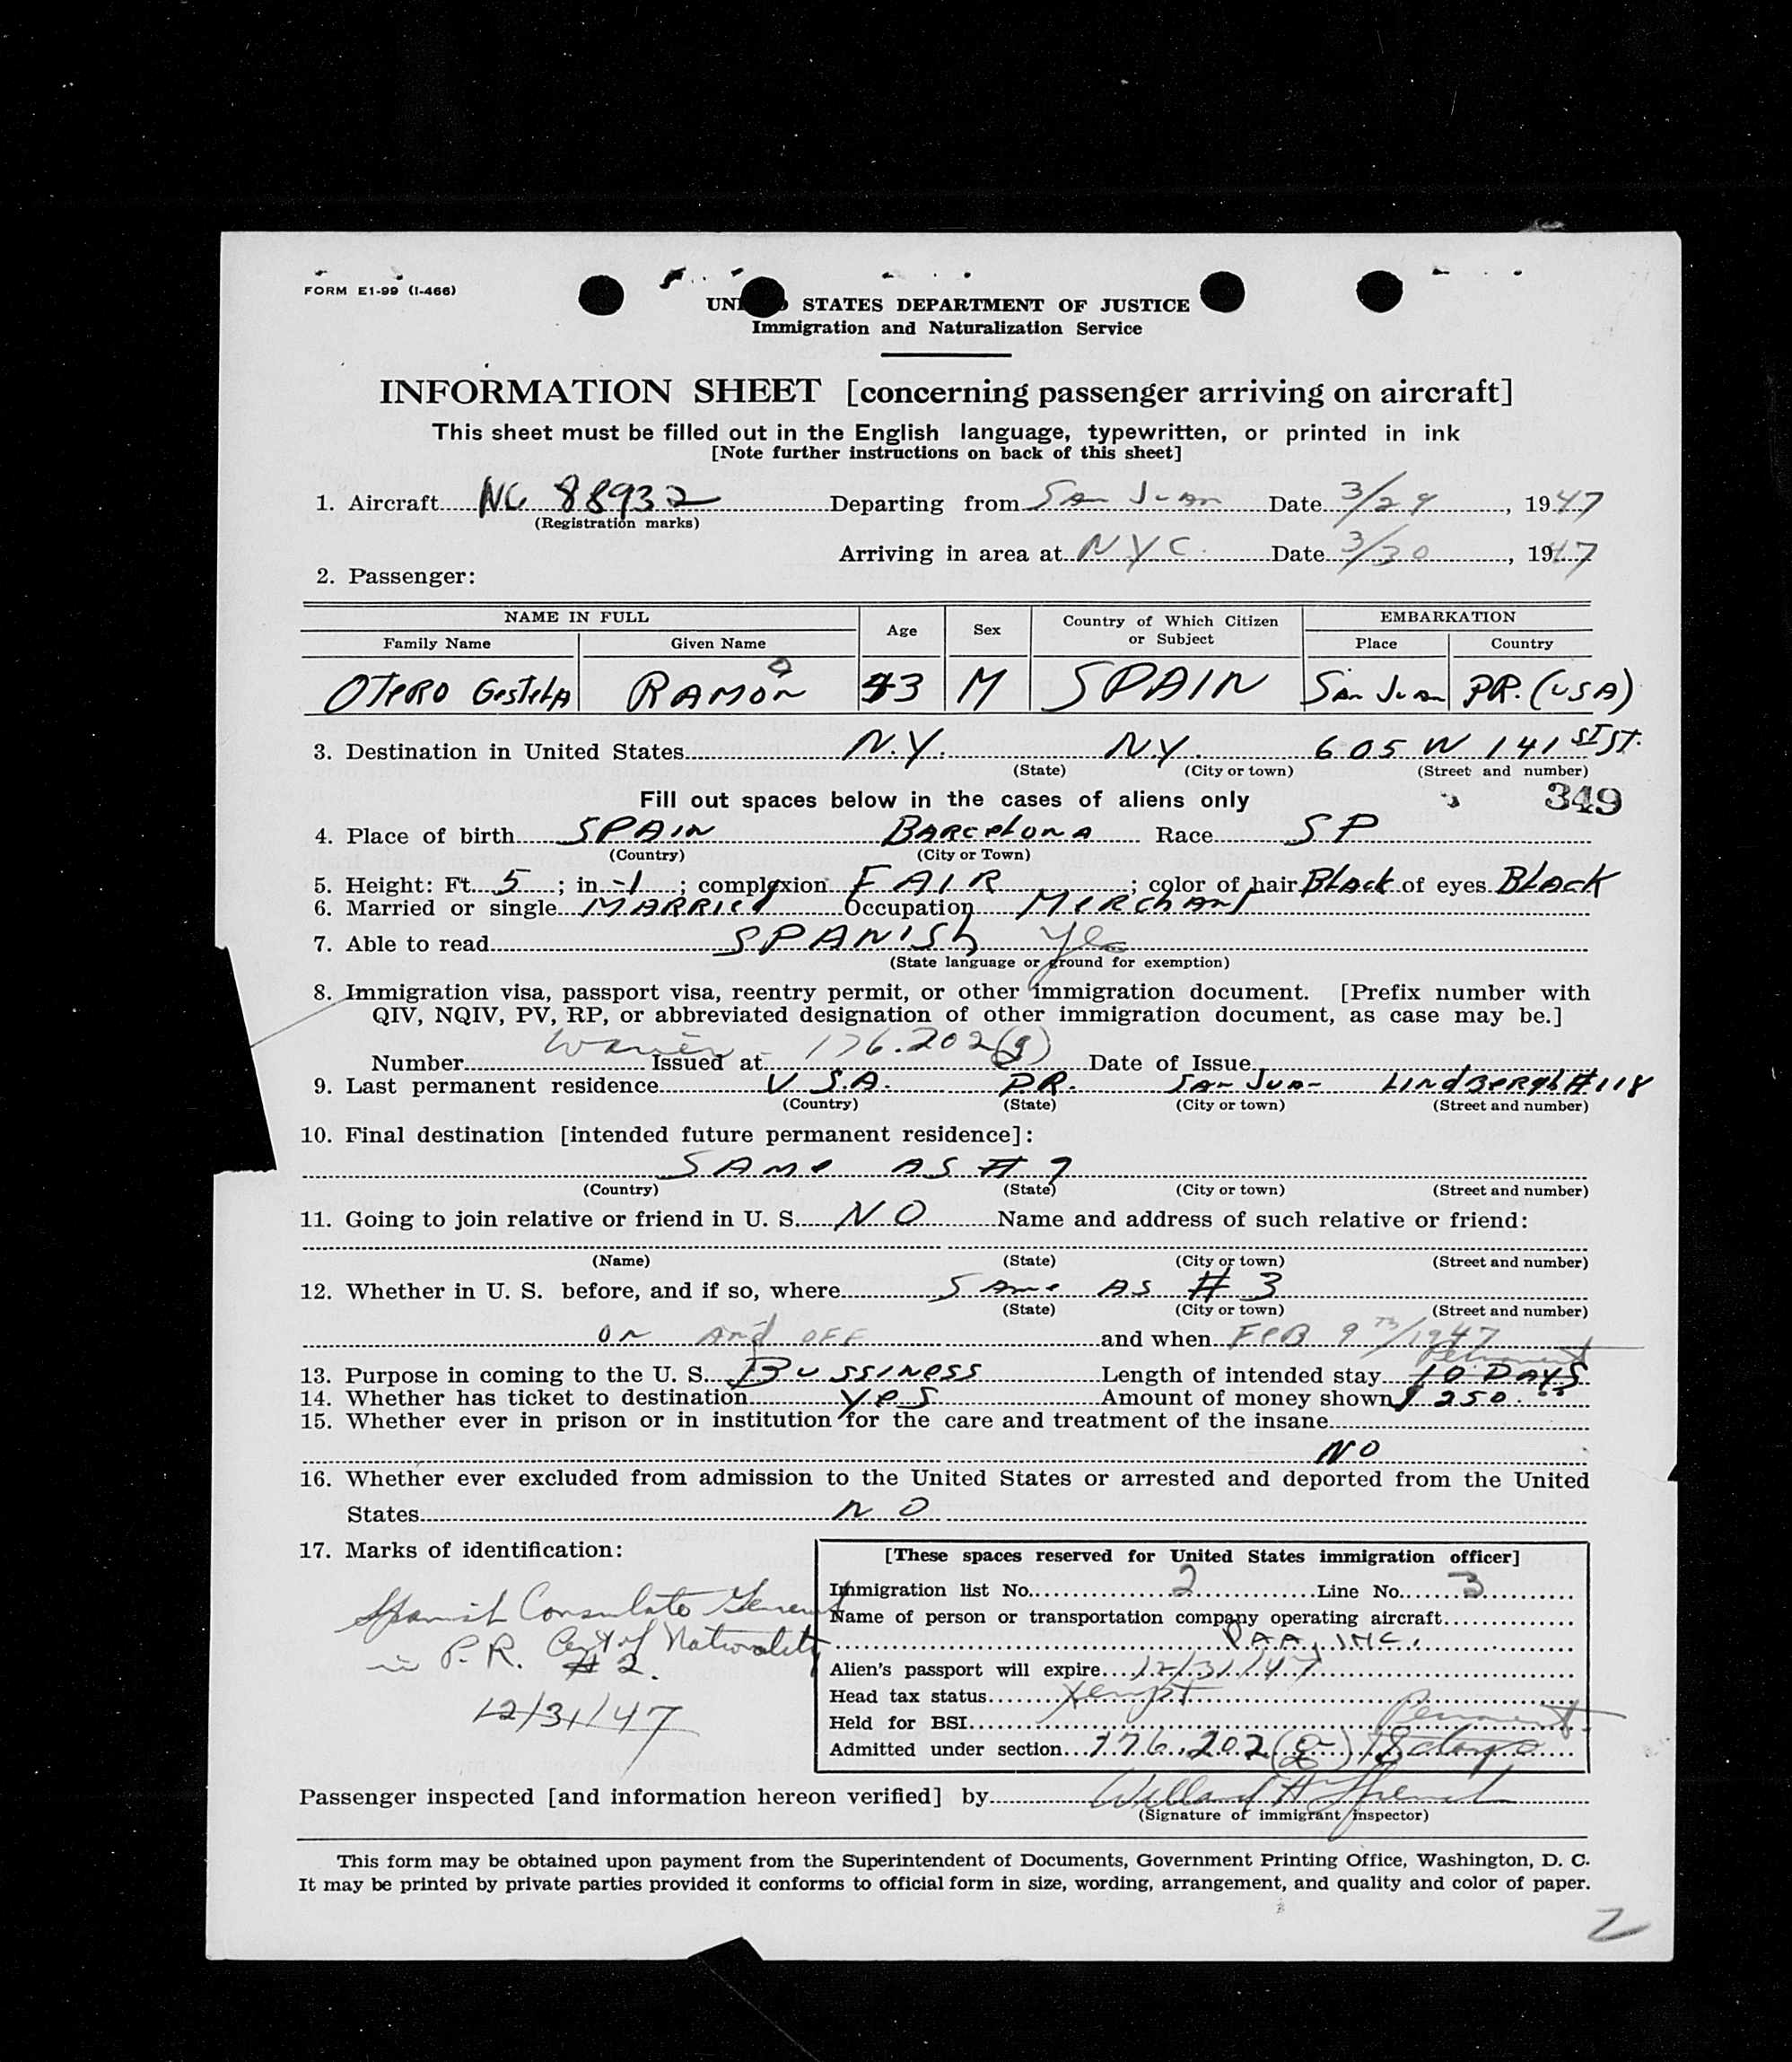 FORM E1-99 (I-466)
UNI D STATES DEPARTMENT OF JUSTICE
Immigration and Naturalization Service
INFORMATION SHEET [concerning passenger arriving on aircraft]
This sheet must be filled out in the English language, typewritten, or printed in ink
[Note further instructions on back of this sheet]
1. Aircraft NC 88932 Departing from San Juan Date 3/29, 1947
(Registration marks)
Arriving in area at NYC Date 3/30, 1947
2. Passenger:
NAME IN FULL Age Sex Country of Which Citizen or Subject EMBARKATION
Family Name Given Name Place Country
OTERO Gestela RAMON 43 M SPAIN San Juan P.R. (USA)
3. Destination in United States N.Y. N.Y. 605 W 141 ST ST.
(State) (City or town) (Street and number)
Fill out spaces below in the cases of aliens only 349
4. Place of birth SPAIN BARCELONA Race SP
(Country) (City or Town)
5. Height: Ft. 5; in -1; complexion FAIR; color of hair BLACK of eyes BLACK
6. Married or single MARRIED Occupation Merchant
7. Able to read SPANISh Yes
(State language or ground for exemption)
8. Immigration visa, passport visa, reentry permit, or other immigration document. [Prefix number with
QIV, NQIV, PV, RP, or abbreviated designation of other immigration document, as case may be.]
Number Waiver - Issued at 176.202(g) Date of Issue
9. Last permanent residence U.S.A. P.R. San Juan Lindbergh #118
(Country) (State) (City or town) (Street and number)
10. Final destination [intended future permanent residence]:
SAME AS # 9
(Country) (State) (City or town) (Street and number)
11. Going to join relative or friend in U. S. NO Name and address of such relative or friend:
(Name) (State) (City or town) (Street and number)
12. Whether in U. S. before, and if so, where Same AS # 3
(State) (City or town) (Street and number)
on And OFF and when FEB 9TH/1947
Permanent
13. Purpose in coming to the U. S. BUSSINESS Length of intended stay 10 DAYS
14. Whether has ticket to destination YES Amount of money shown $ 250.
15. Whether ever in prison or in institution for the care and treatment of the insane
NO
16. Whether ever excluded from admission to the United States or arrested and deported from the United
States NO
17. Marks of identification:
Spanish Consulate General
in P.R. Cert of Nationality
# 2.
12/31/47
[These spaces reserved for United States immigration officer]
Immigration list No. 2 Line No. 3
Name of person or transportation company operating aircraft
PAA, INC.
Alien's passport will expire 12/31/47
Head tax status Xempt
Held for BSI Permanent
Admitted under section 176.202(g) days
Passenger inspected [and information hereon verified] by Willard H
(Signature of immigrant inspector)
This form may be obtained upon payment from the Superintendent of Documents, Government Printing Office, Washington, D. C.
It may be printed by private parties provided it conforms to official form in size, wording, arrangement, and quality and color of paper.
2